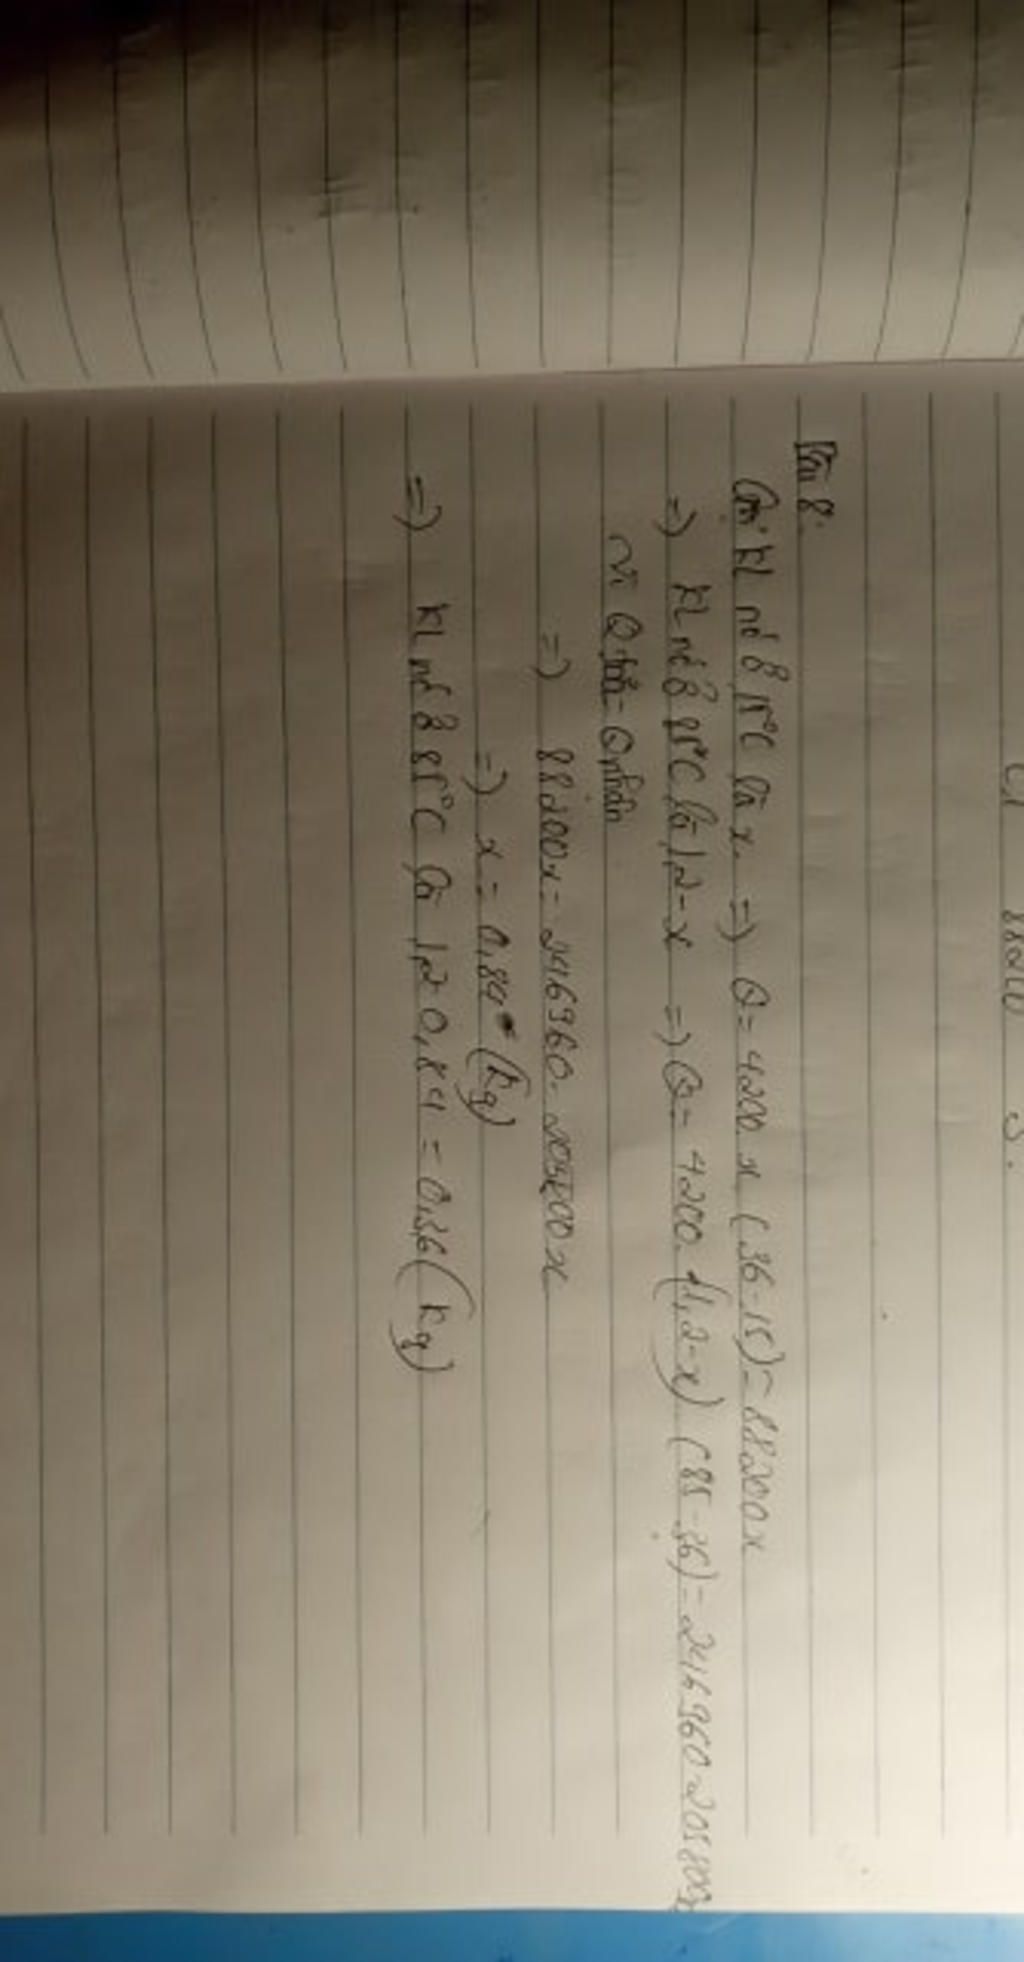 Bài 8:
Gọi KL nước ở 15°C là x. => Q = 4200. x (36-15) = 88200x
=> KL nước ở 85°C là 1,2-x => Q = 4200. (1,2-x). (85-36) = 246960-205800x
Vì Q tỏa = Q nhận
=> 88200x = 246960-205800x
=> x = 0,84 (kg)
=> KL nước ở 85°C là 1,2 0,84 = 0,36 (kg)